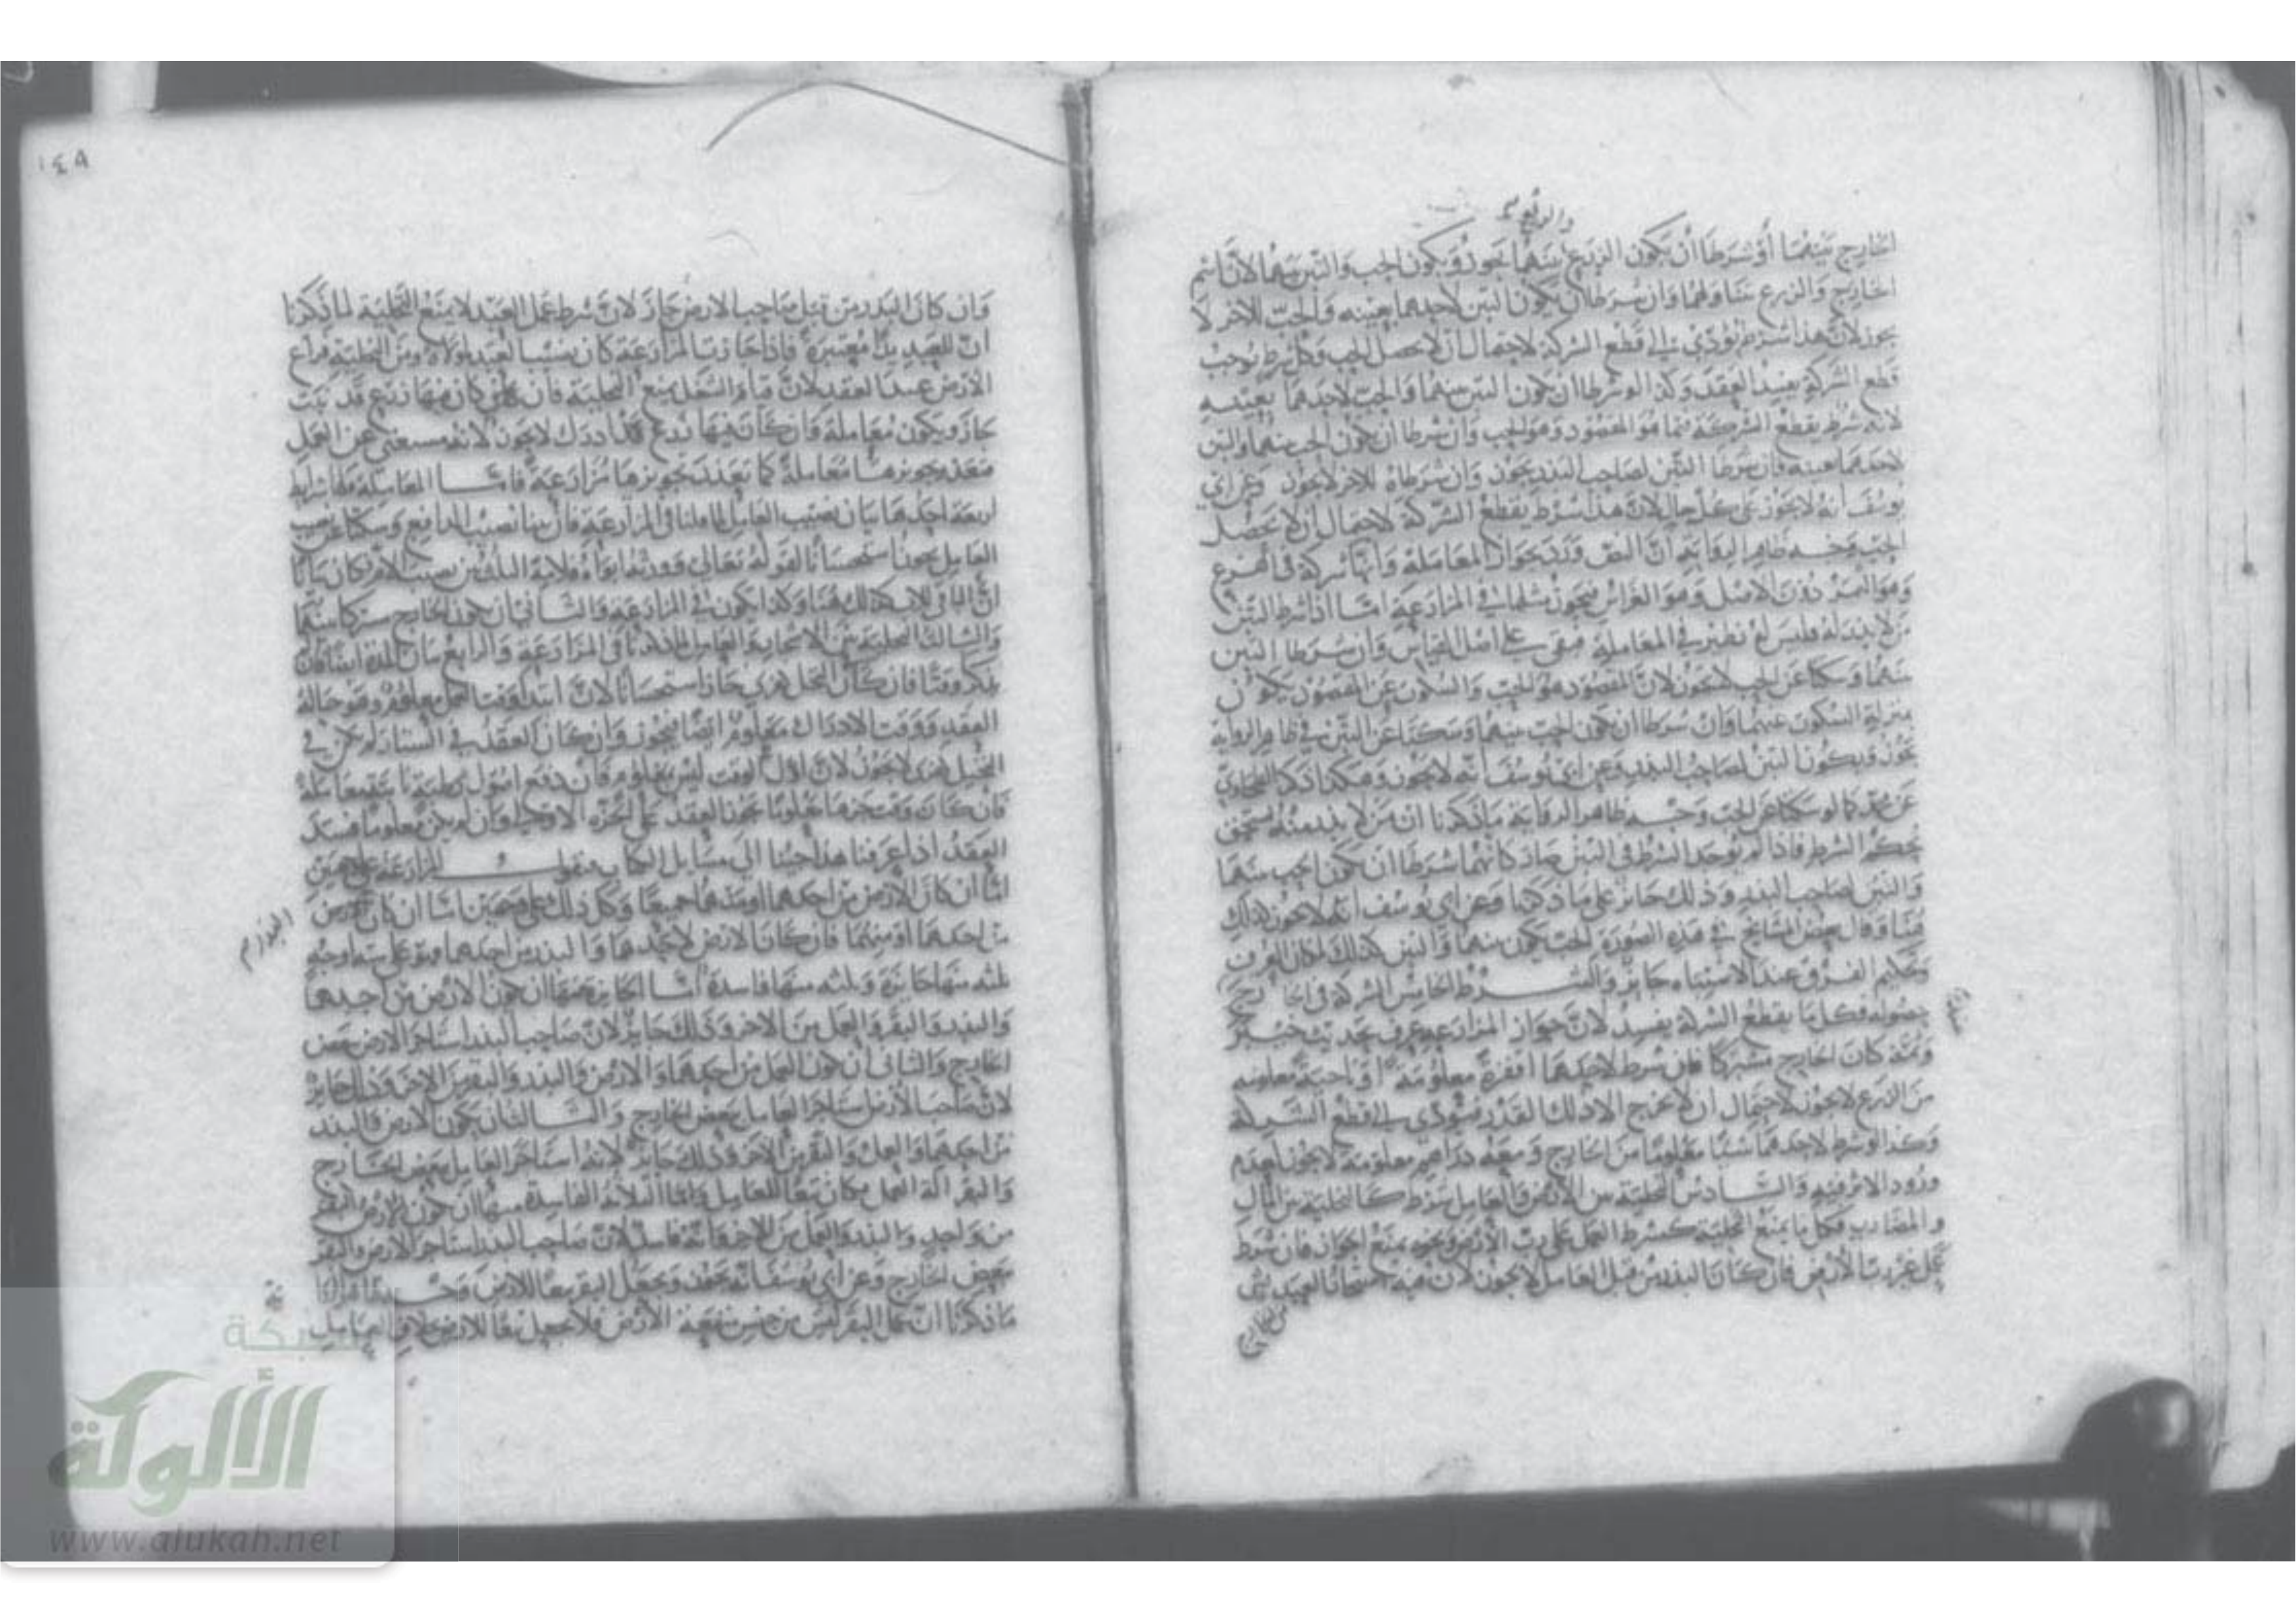 والريع
الخارج بينهما أو شرطا أن يكون الزرع بينهما يجوز ويكون الحب والتبن بينهما لأن اسم
الخارج والزرع يتناولهما وان شرطا أن يكون التبن لأحدهما بعينه والحب للآخر لا
يجوز لأن هذا شرط يؤدي إلى قطع الشركة لاحتمال أن لا يحصل الحب وكل شرط يوجب
قطع الشركة يفسد العقد وكذا لو شرطا أن يكون التبن بينهما والحب لأحدهما بعينه
لأنه شرط يقطع الشركة فيما هو المقصود وهو الحب وان شرطا أن يكون الحب بينهما والتبن
لأحدهما بعينه فان شرطا التبن لصاحب البذر يجوز وان شرطاه للآخر لا يجوز وعن أبي
يوسف أنه لا يجوز على كل حال لأن هذا شرط يقطع الشركة لاحتمال أن لا يحصل
الحب وجه ظاهر الرواية أن النص ورد بجواز المعاملة وأنها شركة في الفرع
وهو الثمر دون الأصل وهو الغراس فيجوز مثلها في المزارعة اما اذا شرط التبن
من لا بذر له فليس له نظير في المعاملة فبقي على أصل القياس وان شرطا التبن
بينهما وسكتا عن الحب لا يجوز لأن المقصود هو الحب والسكوت عن المقصود يكون
بمنزلة السكوت عنهما وان شرطا أن يكون الحب بينهما وسكتا عن التبن في ظاهر الرواية
يجوز ويكون التبن لصاحب البذر وعن أبي يوسف أنه لا يجوز وهكذا ذكر الطحاوي
عن محمد كما لو سكتا عن الحب وجه ظاهر الرواية ما ذكرنا ان من لا بذر منه يستحق
بحكم الشرط فاذا لم يوجد الشرط في التبن صار كأنهما شرطا أن يكون الحب بينهما
والتبن لصاحب البذر وذلك جائز على ما ذكرنا وعن أبي يوسف أنه لا يجوز لذلك
وقال بعض المشايخ في هذه الصورة الحب يكون بينهما والتبن كذلك لمكان العرف
وتحكيم العرف عند الاشتباه جائز والشرط الخامس الشركة في الخارج
حصوله فكل ما يقطع الشركة يفسد لأن جواز المزارعة عرف بحديث خيبر
وثمة كان الخارج مشتركا فان شرط لأحدهما أقفزة معلومة أو ناحية معلومة
من الزرع لا يجوز لاحتمال أن لا يخرج الا ذلك القدر فيؤدي إلى قطع الشركة
وكذا لو شرط لأحدهما شيئا معلوما من الخارج ومعه دراهم معلومة لا يجوز لعدم
ورود الأثر فيه والسادس التخلية بين الأرض والعامل شرط كالتخلية بين المال
والمضارب فكل ما يمنع التخلية كشرط العمل على رب الأرض ونحوه يمنع الجواز فان شرط
عمل عبد رب الأرض فان كان البذر من قبل العامل لا يجوز لأن
١٤٨
وان كان البذر من قبل صاحب الأرض جاز لأن شرط عمل العبد لا يمنع التخلية لما ذكرنا
أن للعبد يدا معتبرة
الأرض عند العقد لأن
جاز ويكون معاملة فان كان فيها زرع قد أدرك لا يجوز لأنه مستغنى عن العمل
فتعذر تجويزها معاملة كما تعذر تجويزها مزارعة فاما المعاملة فلها شرايط
أربعة أحدها بيان نصيب العامل لما قلنا في المزارعة فان بينا نصيب الدافع وسكتا عن نصيب
العامل يجوز استحسانا لقوله تعالى وورثه أبواه فلأمه الثلث بين نصيب الأم فكان بيانا
أن الباقي للأب كذلك هنا وكذا يكون في المزارعة والثاني أن يكون الخارج مشتركا بينهما
والثالث التخلية بين الأشجار والعامل لما ذكرنا في المزارعة والرابع بيان المدة
يذكر وقتا فان كان النخل جاز استحسانا لأن ابتداء وقت العمل معلوم وهو حالة
العقد ووقت الادراك معلوم أيضا فيجوز وان كان العقد
لا يجوز لأن أول الوقت ليس بمعلوم فان دفع أصول رطبة
فان كان وقت جزها معلوما يجوز العقد على الجزة الأولى وان لم يكن معلوما فسد
العقد اذا عرفنا هذا جئنا الى مسايل الكتاب فنقول المزارعة على وجهين
اما أن كان الأرض من أحدهما أو منهما جميعا وكل ذلك على وجهين اما ان كان البذر
من أحدهما أو منهما فان كان الأرض لأحدهما والبذر من أحدهما فهو على ستة أوجه
ثلثة منها جائزة وثلثة منها فاسدة أما الجائزة فمنها أن يكون الأرض من أحدهما
والبذر والبقر والعمل من الآخر وذلك جائز لأن صاحب البذر استأجر الأرض ببعض
الخارج والثاني أن يكون العمل من أحدهما والأرض والبذر والبقر من الآخر وذلك جائز
لأن صاحب الأرض استأجر العامل ببعض الخارج والثالث أن يكون الأرض والبذر
من أحدهما والعمل والبقر من الآخر وذلك جائز لأنه استأجر العامل ببعض الخارج
والبقر آلة العمل فكان تبعا للعامل واما الثلاثة الفاسدة منها أن يكون الأرض والبقر
من واحد والبذر والعمل من الآخر وأنه فاسد لأن صاحب البذر استأجر الأرض والبقر
ببعض الخارج وعن أبي يوسف أنه يجوز ويجعل البقر تبعا للأرض وجه
ما ذكرنا أن عمل البقر ليس من جنس منفعة الأرض فلا يجعل تبعا للأرض بخلاف العامل
شبكة
الألوكة
www.alukah.net